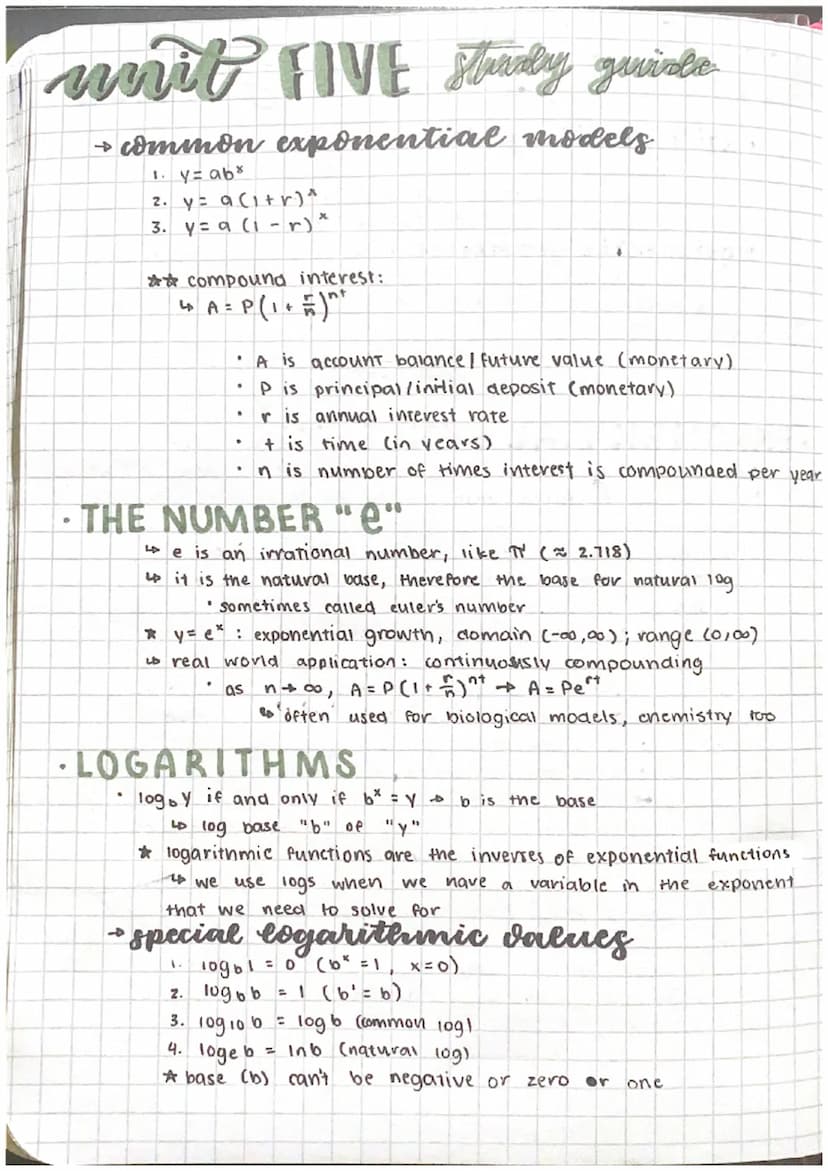 unit FIVE study guide
→ common exponential models
1. y = abˣ
2. y = a(1+r)ˣ
3. y = a(1-r)ˣ
★★ compound interest:
↳ A = P(1 + r/n)ⁿᵗ
• A is account balance/future value (monetary)
• P is principal/initial deposit (monetary)
• r is annual interest rate
• t is time (in years)
• n is number of times interest is compounded per year
• THE NUMBER "e"
↳ e is an irrational number, like π (≈ 2.718)
↳ it is the natural base, therefore the base for natural log
• sometimes called euler's number
★ y = eˣ : exponential growth, domain (-∞,∞); range (0,∞)
↳ real world application: continuously compounding
• as n→∞, A = P(1 + r/n)ⁿᵗ → A = Peʳᵗ
↳ often used for biological models, chemistry too
• LOGARITHMS
• log_b y if and only if bˣ = y → b is the base
↳ log base "b" of "y"
★ logarithmic functions are the inverses of exponential functions
↳ we use logs when we have a variable in the exponent
that we need to solve for
→ special logarithmic values
1. log_b 1 = 0 (bˣ = 1, x=0)
2. log_b b = 1 (b¹ = b)
3. log₁₀ b = log b (common log)
4. logₑ b = ln b (natural log)
★ base (b) can't be negative or zero or one